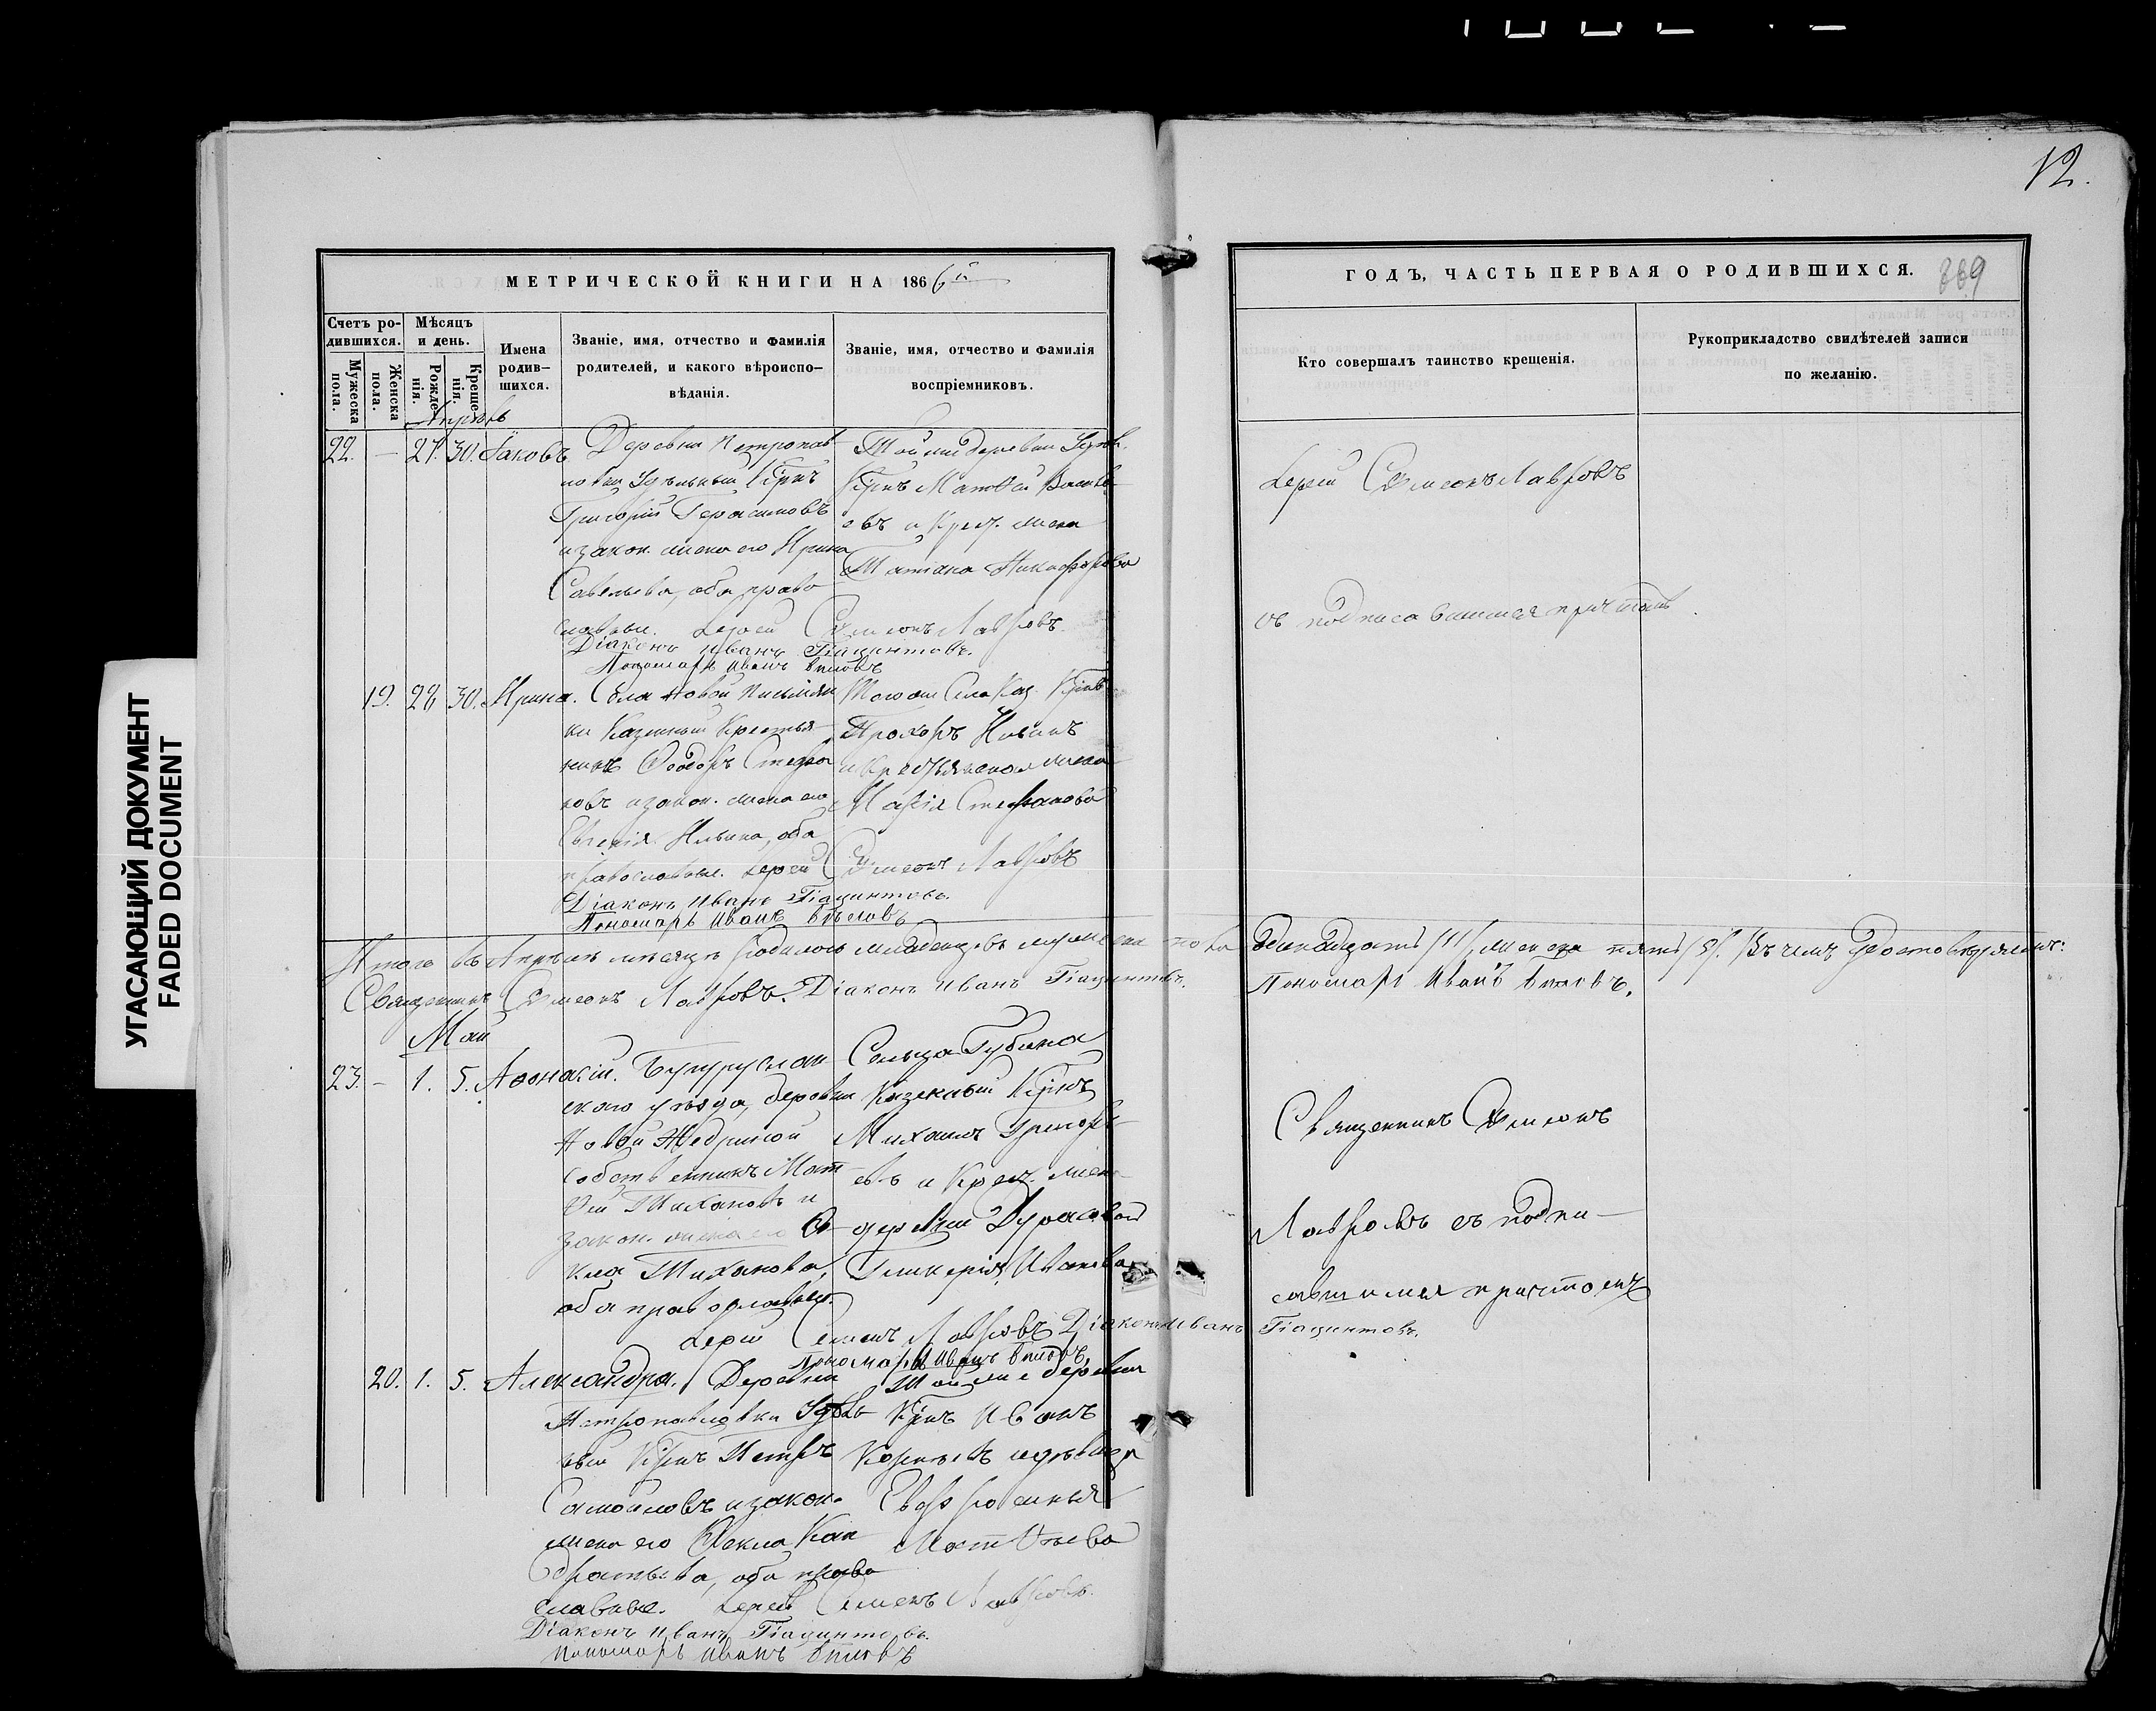 12.
УГАСАЮЩИЙ ДОКУМЕНТ
FADED DOCUMENT
МЕТРИЧЕСКОЙ КНИГИ НА 1866й
ГОДЪ, ЧАСТЬ ПЕРВАЯ О РОДИВШИХСЯ.
869
Счетъ ро-
дившихся.
Мужеска
пола.
Женска
пола.
Мѣсяцъ
и день.
Рожде-
нія.
Креще-
нія.
Имена
родив-
шихся.
Званіе, имя, отчество и фамилія
родителей, и какого вѣроиспо-
вѣданія.
Званіе, имя, отчество и фамилія
воспріемниковъ.
Кто совершалъ таинство крещенія.
Рукоприкладство свидѣтелей записи
по желанію.
Апрѣль
22. – 27. 30. Іаковъ
Деревни Петропав
ловки Удѣльный Крнъ
Григорій Герасимовъ
и закон. жена его Ирина
Савельева, оба право
славные. Іерей Сѵмеонъ Лавровъ
Діаконъ Иванъ Гіацинтовъ.
Пономарь Иванъ
Той же деревни Удѣл.
Крнъ Матвѣй Василь
евъ и Крест. жена
Татіана Никифорова
Іерей Сѵмеонъ Лавровъ
съ подписавшимся причтомъ.
19. 28 30. Ирина.
Села Новой Письмян
ки Казенный Крестья
нинъ Ѳеодоръ Стефа
новъ и закон. жена его
Евгенія Ильина, оба
православные. Іерей Сѵмеонъ Лавровъ
Діаконъ Иванъ Гіацинтовъ.
Пономарь Иванъ
Того же Села Каз. Крнъ
Прохоръ Ильинъ
и крестьянская жена
Марія Стефанова
Итого въ Апрѣлѣ мѣсяцѣ родилось младенцевъ мужеска пола одинадцать /11/, женска пять /5/. Въ чемъ удостовѣряемъ:
Священникъ Сѵмеонъ Лавровъ. Діаконъ Иванъ Гіацинтовъ. Пономарь Иванъ
Май
23. – 1. 5. Аѳонасій.
Бугуруслан
скаго уѣзда, деревни
Новой Жедриной
собственникъ Мат
вѣй Тихановъ и
закон. жена его Ѳ
кла Тиханова,
оба православные.
Іерей Семенъ Лавровъ Діаконъ Иванъ Гіацинтовъ.
Пономарь Иванъ
Сельца Губина
Казенный Крнъ
Михаилъ Григорь
евъ и Крест. жен
деревни Дурасовой
Гликерія Иванова
Священникъ Сѵмеонъ
Лавровъ съ подпи–
савшимся причтомъ
20. 1. 5. Александра.
Деревни
Петропавловки Удѣль
ный Крнъ Петръ
Самойловъ и закон.
жена его Ѳекла Кон
дратьева, оба право
славные. Іерей Семенъ Лавровъ.
Діаконъ Иванъ Гіацинтовъ.
Пономарь Иванъ
Той же деревни
Крнъ Иванъ
и дѣвица
Евфросинья
Матвѣева